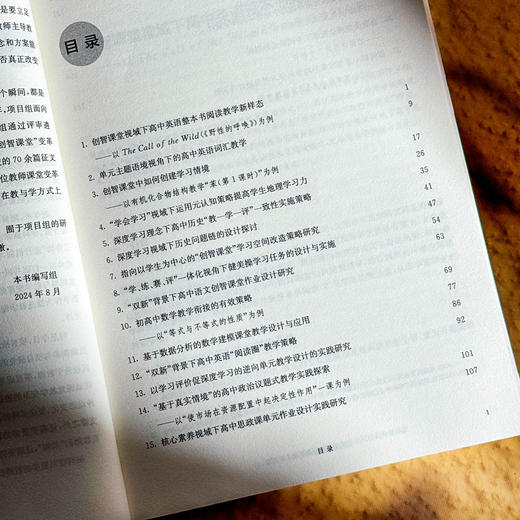 是要立足
教师主导教
念和方案能
否真正改变
个瞬间,都是
,项目组面向
组通过评审遴
创智课堂”变革
的 70 余篇征文
位教师课堂变革
在教与学方式上
囿于项目组的研
激。
本书编写组
2024 年 8 月
目录
1. 创智课堂视域下高中英语整本书阅读教学新样态 1
——以 The Call of the Wild(《野性的呼唤》)为例
2. 单元主题语境视角下的高中英语词汇教学 9
3. 创智课堂中如何创建学习情境 17
——以有机化合物结构教学“苯(第 1 课时)”为例
4. “学会学习”视域下运用元认知策略提高学生地理学习力 26
5. 深度学习理念下高中历史“教—学—评”一致性实施策略 35
6. 深度学习视域下历史问题链的设计探讨 41
7. 指向以学生为中心的“创智课堂”学习空间改造策略研究 47
8. “学、练、赛、评”一体化视角下健美操学习任务的设计与实施 54
9. “双新”背景下高中语文创智课堂作业设计研究 63
10. 初高中数学教学衔接的有效策略 69
——以“等式与不等式的性质”为例
11. 基于数据分析的数学建模课堂教学设计与应用 77
12. “双新”背景下高中英语“阅读圈”教学策略 86
13. 以学习评价促深度学习的逆向单元教学设计的实践研究 92
14. “基于真实情境”的高中政治议题式教学实践探索 101
——以“使市场在资源配置中起决定性作用”一课为例
15. 核心素养视域下高中思政课单元作业设计实践研究 107
目录 1